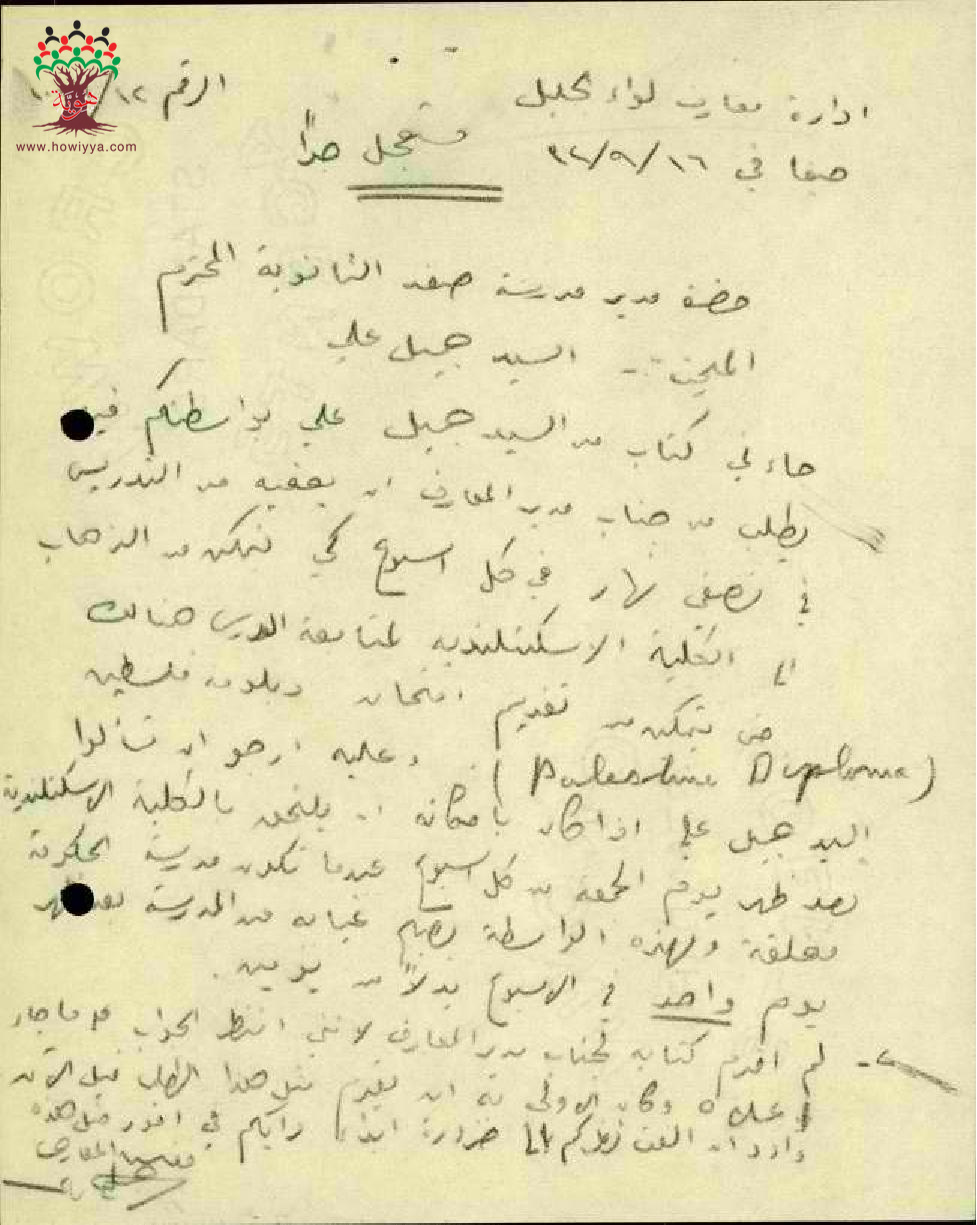 هوية
www.howiyya.com
الرقم ١٢/
ادارة معارف لواء الجليل
صفا في ١٦/٩/٤٢
مستعجل جداً
حضرة مدير مدرسة صفد الثانوية المحترم
السيد جميل علي
جاءني كتاب من السيد جميل علي بواسطتكم فيه
يطلب من جناب مدير المعارف ان يعفيه من التدريس
في نصفي نهار في كل اسبوع كي يتمكن من الذهاب
الى الكلية الاسكتلندية لمتابعة الدرس هنالك
حتى يتمكن من تقديم امتحان دبلوم فلسطين
(Palestine Diploma) . وعليه ارجو ان تسألوا
السيد جميل علي اذا كان بامكانه ان يلتحق بالكلية الاسكتلندية
بعد ظهر يوم الجمعة من كل اسبوع عندما تكون مدرسة الحكومة
مغلقة وبهذه الواسطة يصبح غيابه من المدرسة بعد ظهر
يوم واحد في الاسبوع بدلاً من يومين .
٢- لم اقدم كتابه لجناب مدير المعارف لانني انتظر الجواب على ما جاء
اعلاه وكان الاولى به ان يقدم مثل هذا الطلب قبل الآن
واود ان الفت نظركم الى ضرورة ابداء رأيكم في امور مثل هذه
مفتش المعارف